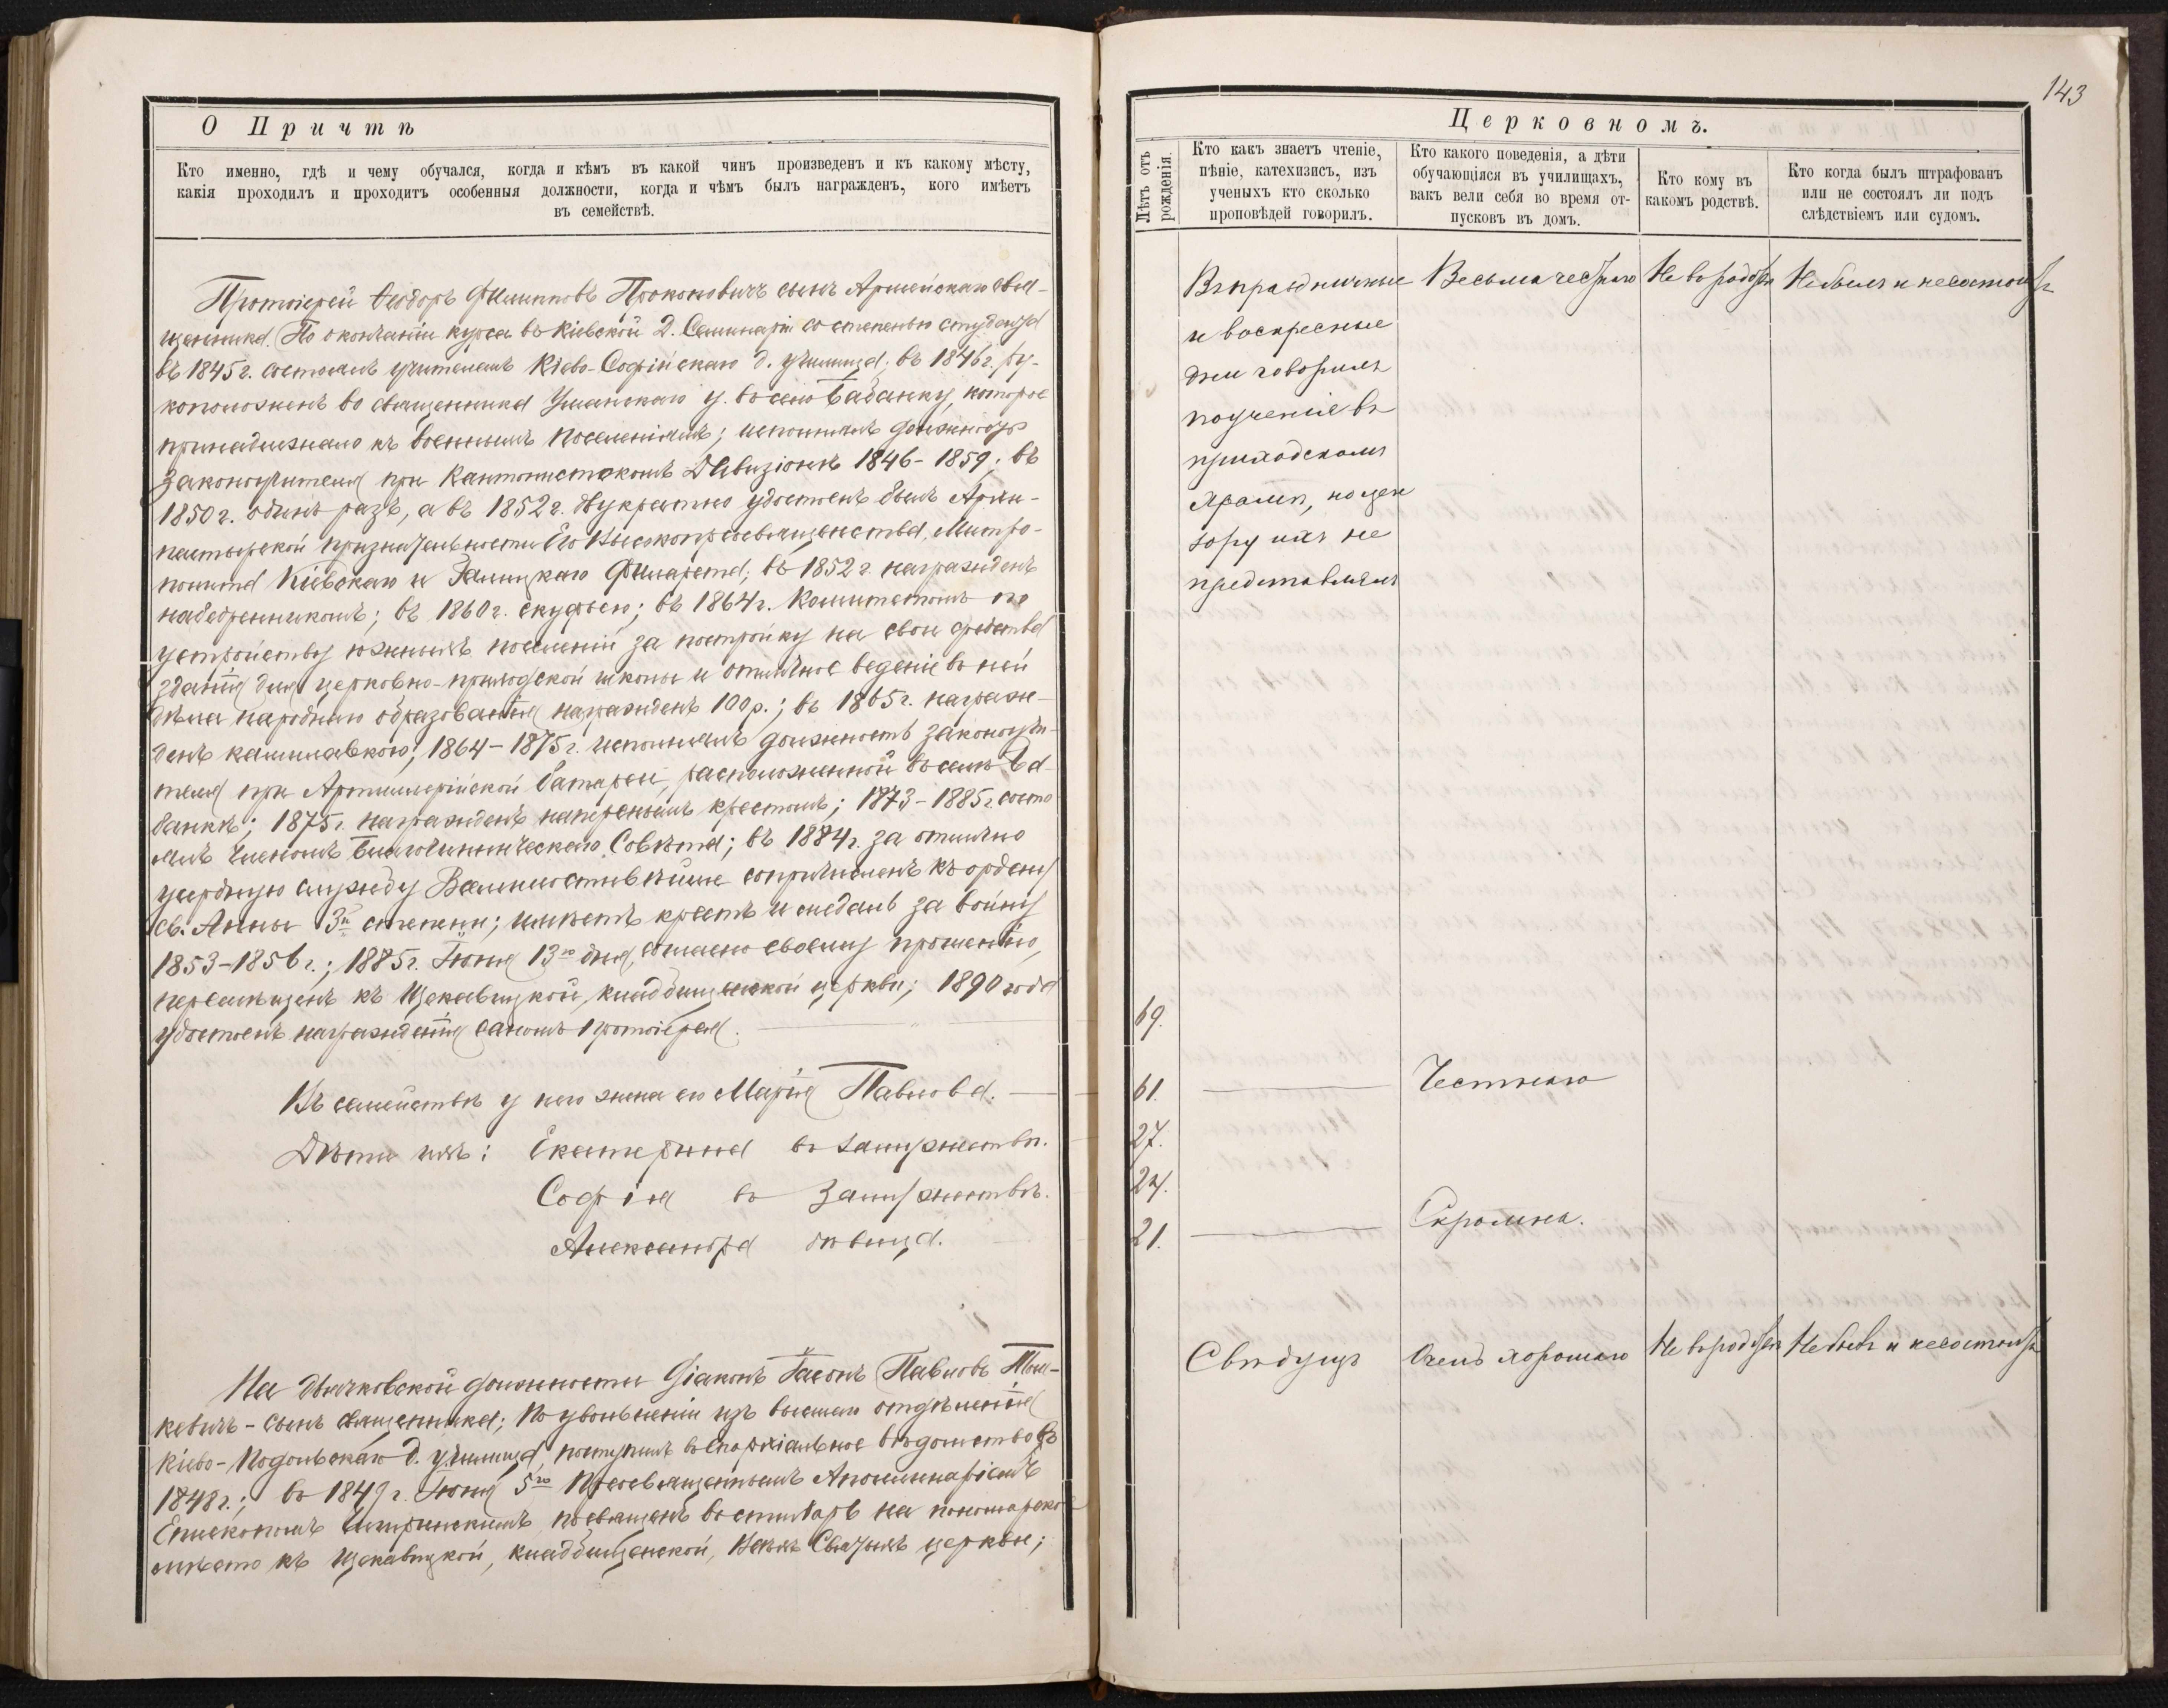 О Причтѣ
Кто именно, гдѣ и чему обучался, когда и кѣмъ въ какой чинъ произведенъ и къ какому мѣсту,
какія проходилъ и проходитъ особенныя должности, когда и чѣмъ былъ награжденъ, кого имѣетъ
въ семействѣ.
Протоіерей Ѳеодоръ Филипповъ Прокоповичъ сынъ Армейскаго свя-
щенника. По окончаніи курса въ Кіевской Д. Семинаріи со степенью студента
въ 1845 г. состоялъ учителемъ Кіево-Софійскаго д. училища; въ 1846 г. ру-
коположенъ во священника Уманскаго у. въ село Бабанку, которое
принадлежало къ военнымъ поселеніямъ; исполнялъ должность
законоучителя при Кантонистскомъ Дивизіонѣ 1846-1859; въ
1850 г. одинъ разъ, а въ 1852 г. двукратно удостоенъ былъ Архи-
пастырской признательности Его Высокопреосвященства, Митро-
полита Кіевскаго и Галицкаго Филарета; въ 1852 г. награжденъ
набедренникомъ; въ 1860 г. скуфьею; въ 1864 г. Комитетомъ по
устройству южныхъ поселеній за постройку на свои средства
зданія для церковно-приходской школы и отличное веденіе въ ней
дѣла народнаго образованія награжденъ 100 р.; въ 1865 г. награж-
денъ камилавкою; 1864-1875 г. исполнялъ должность законоучи-
теля при Артиллерійской батареи, расположенной въ селѣ Ба-
банкѣ; 1875 г. награжденъ наперснымъ крестомъ; 1873-1885 г. состо
ялъ Членомъ Благочинническаго Совѣта; въ 1884 г. за отлично
усердную службу Всемилостивѣйше сопричисленъ къ ордену
св. Анны 3й степени; имѣетъ крестъ и медаль за войну
1853-1856 г.; 1885 г. Іюня 13го дня, согласно своему прошенію,
перемѣщенъ къ Щекавицкой, кладбищенской церкви; 1890 года
удостоенъ награжденія саномъ Протоіерея.
Въ семействѣ у него жена его Марія Павлова.
Дѣти ихъ: Екатерина въ замужествѣ.
Софія въ замужествѣ.
Александра дѣвица.
На дьячковской должности Діаконъ Іасонъ Павловъ
кевичъ - сынъ священника; по увольненіи изъ высшаго отдѣленія
Кіево-Подольскаго д. училища, поступилъ въ епархіальное вѣдомство въ
1848 г.; въ 1849 г. Іюня 5го Преосвященнымъ Аполлинаріемъ
Епископомъ Чигиринскимъ посвященъ въ стихарь на пономарско
мѣсто къ Щекавицкой, кладбищенской, Всѣхъ Святыхъ церкви;
143
Церковномъ.
Лѣтъ отъ рожденія.
Кто какъ знаетъ чтеніе,
пѣніе, катехизисъ, изъ
ученыхъ кто сколько
проповѣдей говорилъ.
Кто какого поведенія, а дѣти
обучающіяся въ училищахъ,
какъ вели себя во время от-
пусковъ въ домъ.
Кто кому въ
какомъ родствѣ.
Кто когда былъ штрафованъ
или не состоялъ ли подъ
слѣдствіемъ или судомъ.
Въ праздничные
и воскресные
дни говорилъ
поученіе въ
приходскомъ
храмѣ, но цен
зору ихъ не
представлялъ
Весьма честнаго
Не въ родствѣ
Не былъ и не состоитъ
69.
61. Честнаго
27.
24.
21. Скромна.
Свѣдущъ Очень хорошаго Не въ родствѣ Не былъ и не состоитъ